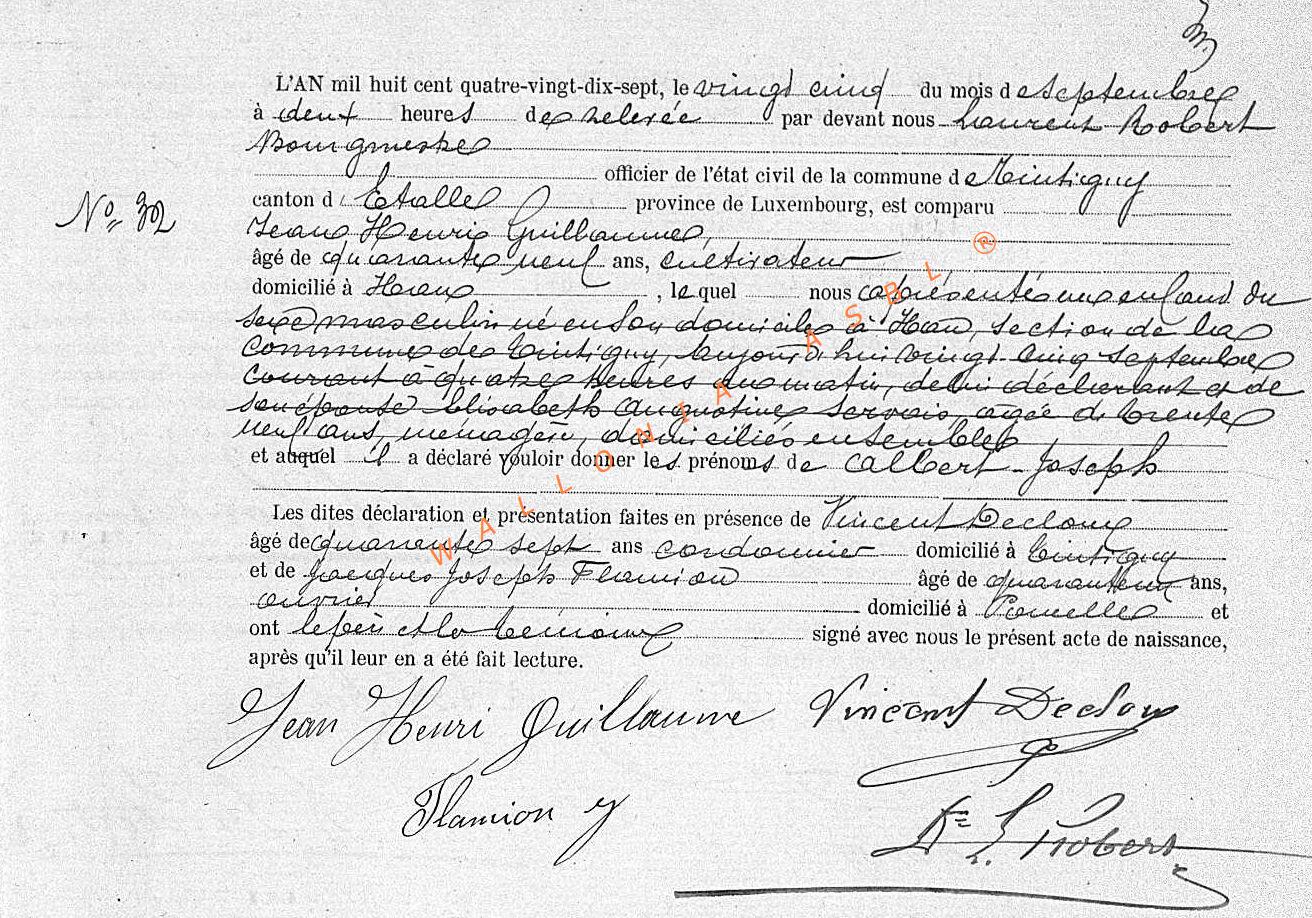 L'AN mil huit cent quatre-vingt-dix-sept, le vingt cinq du mois de septembre
à deux heures de relevée par devant nous Laurent Robert
Bourgmestre
officier de l'état civil de la commune de Tintigny
N° 32
canton d'Etalle province de Luxembourg, est comparu
Jean Henri Guillaume,
âgé de quarante neuf ans, cultivateur
domicilié à Han, lequel nous a présenté un enfant du
sexe masculin né en son domicile à Han, section de la
commune de Tintigny, aujourd'hui vingt cinq septembre
courant à quatre heures du matin, de lui déclarant et de
son épouse Elisabeth Augustine Servais, agée de trente
neuf ans, ménagère, domiciliés ensemble
et auquel il a déclaré vouloir donner les prénoms de Albert-Joseph
Les dites déclaration et présentation faites en présence de Vincent Decloux
âgé de quarante sept ans cordonnier domicilié à Tintigny
et de Jacques Joseph Flamion âgé de ans,
ouvrier domicilié à et
ont le père et les témoins signé avec nous le présent acte de naissance,
après qu'il leur en a été fait lecture.
Jean Henri Guillaume Vincent Decloux
Flamion J
L. Robert
WALLONIA ASBL ®